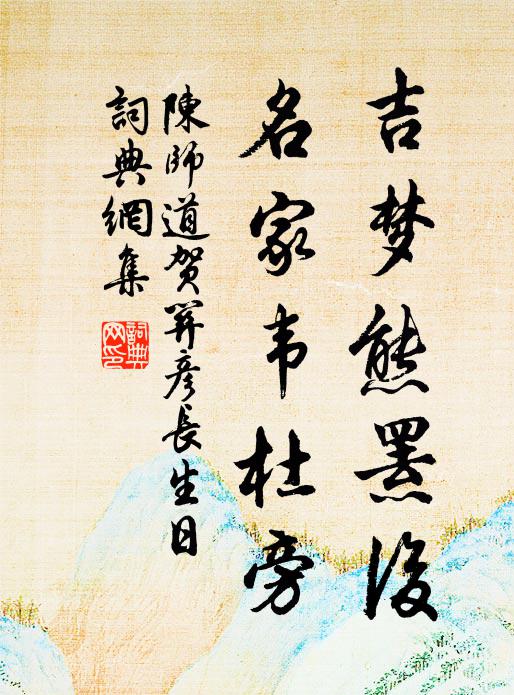 吉梦熊罴後
名家韦杜旁
陳師道賀关彦長生日
詞典網集
詞典網印